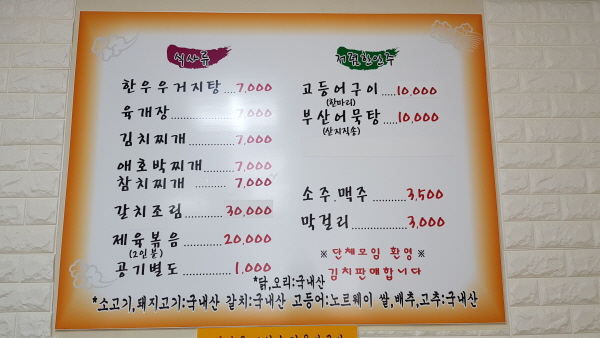 식사류
한우우거지탕....7,000
육개장..............7,000
김치찌개..........7,000
애호박찌개.......7,000
참치찌개 ........ 7,000
갈치조림..........30,000
제육볶음..........20,000
(2인분)
공기별도..........1,000
저렴한안주
고등어구이.....10,000
(한마리)
부산어묵탕.....10,000
(산지직송)
소주.맥주 ........3,500
막걸리..............3,000
※ 단체모임 환영 ※
김치판매합니다
*닭,오리:국내산
*소고기,돼지고기:국내산 갈치:국내산 고등어:노르웨이 쌀,배추,고추:국내산